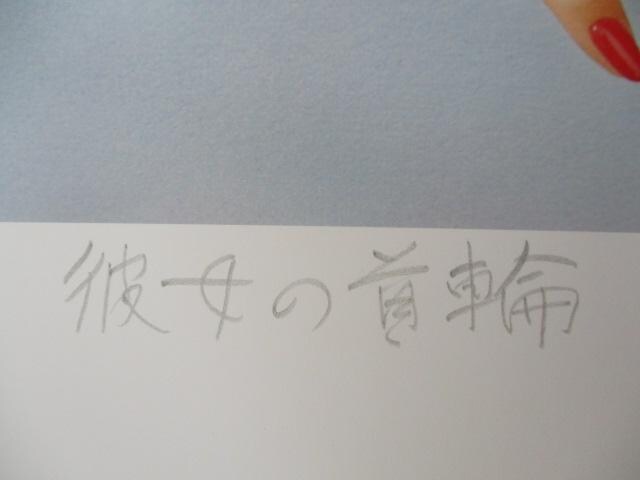 彼女の首輪